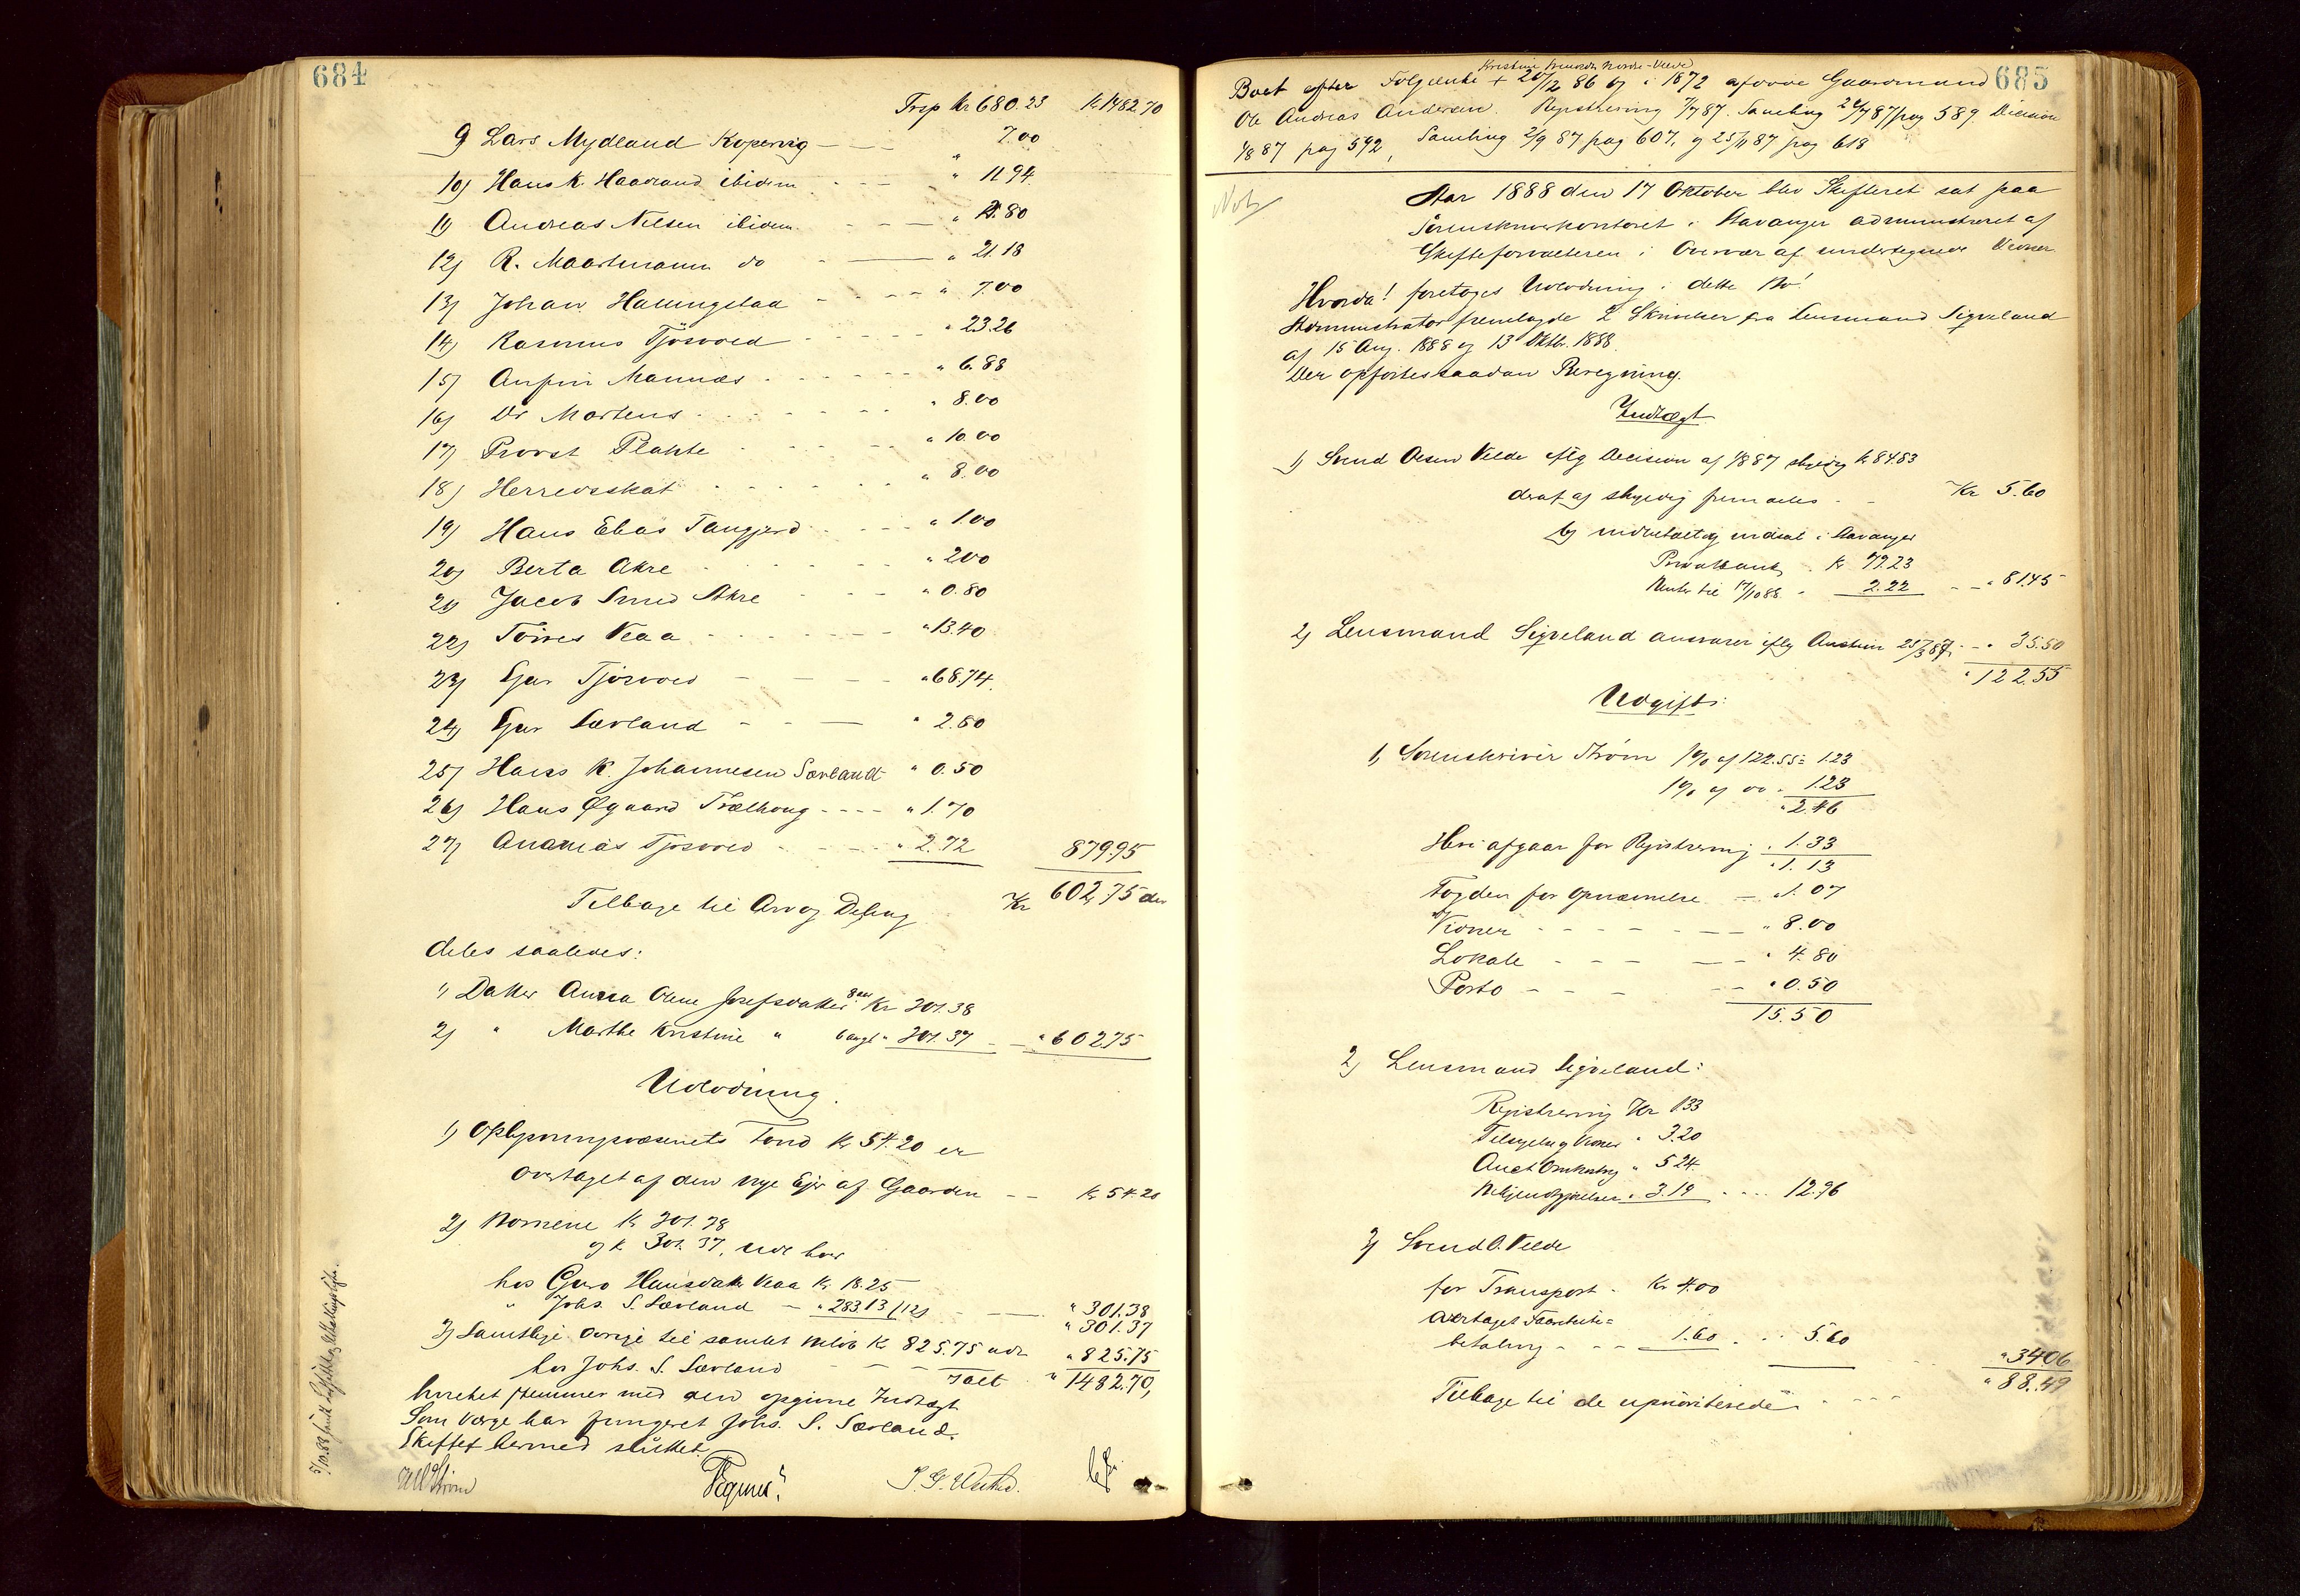 684
Trsp Kr 680.23 Kr 1482.70
9 Lars Mydland Kopervig — " 7.00
10) Hans K. Haaland ibidem " 11.94
11) Andreas Nilsen ibidem " .80
12) R. Maartmann do — " 21.18
13) Johan Hallingstad " 7.00
14) Rasmus Tjøsvold " 23.26
15) Anfin Mannes " 6.88
16) Dr Martens " 8.00
17) Provst Plahte " 10.00
18) Herredsskat " 8.00
19) Hans Elias Tangjerd " 1.00
20) Berta Akre " 2.00
21) Jacob Smed Akre " 0.80
22) Torres Veaa " 13.40
23) Gjer Tjøsvold — " 68.74
24) Gjer Sævland — " 2.60
25) Hans K. Johannesen Sævland " 0.50
26) Hans Øgaard Trælhoug " 1.70
27) Ananias Tjøsvold " 2.72 879.95
Tilbage til Arv og Deling Kr 602,75 der
deles saaledes:
1) Datter Anna Oline Josefsdatter 8 aar Kr 301.38
2) " Marthe Kristine " 6 aar " 301.37 — " 602.75
Udlodning.
1) Oplysningsvæsenets Fond Kr 54.20 er
overtaget af den nye Ejer af Gaarden — Kr 54.20
2) Børnene Kr 301.38
og Kr 301.37, udl. hos
hos Guro Hansdatter Veaa Kr 18.25
" Johs. S. Sævland — " 283.13 (12) — " 301.38
" 301.37
3) Samtlige øvrige til samlet Beløb Kr 825.75 udl
hos Johs. S. Sævland " 825.75
Ialt " 1482.70,
hvilket stemmer med den opgivne Indtægt
Som Værge har fungeret Johs. S. Sævland.
Skiftet dermed sluttet.
685
Kristine Norde-Velde
Boet efter Følgende + 20/12 86 og i 1872 afdøde Gaardmand
Ole Andreas Andersen. Registrering 7/7 87. Samling 26/7 87 pag 589. Decision
1/8 87 pag 592, Samling 2/9 87 pag 607, og 25/11 87 pag 618
Not
Aar 1888 den 17 Oktober blev Skifteret sat paa
Sorenskriverkontoret i Stavanger administreret af
Skifteforvalteren i Overvær af undertegnede Vidner
Hvorda! foretoges Udlodning i dette Bo.
Administrator fremlagde 2 Skrivelser fra Lensmand Sigveland
af 15 Aug. 1888 og 13 Oktbr. 1888.
Der opførtes saadan Beregning.
Indtægt
1) Svend Olsen Velde iflg Decision af 1/8 87 skyldig Kr 84.83
deraf a) skyldig fremdeles - - Kr 5.60
b) indbetalt og indsat i Stavanger
Privatbank . Kr 79.23
Renter til 17/10 88. " 2.22 — " 81.45
2) Lensmand Sigveland ansvarer iflg Auction 25/3 87 — " 35.50
" 122.55
Udgift:
1) Sorenskriver Strøm 1% af 122.55 = 1.23
1% af do " 1.23
" 2.46
Heri afgaar for Registrering " 1.33
" 1.13
Fogden for Opnævnelse — " 1.07
Vidner — " 8.00
Lokale — " 4.80
Porto — " 0.50
15.50
2) Lensmand Sigveland:
Registrering Kr 1.33
Tilsigelse og Vidner " 3.20
Auct Omkostng " 5.24
" 3.19 12.96
3) Svend O. Velde
for Transport - Kr 4.00
betaling - - 1.60 . . 5.60
" 34.06
" 88.49
Tilbage til de uprioriterede